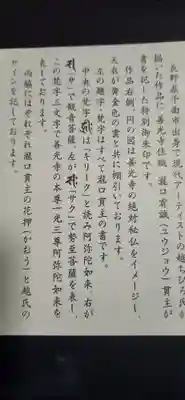 長野県千曲市出身で現代アーティストの越ちひろ氏が
描いた作品に 善光寺住職 瀧口宥誠(ユウジョウ)貫主が
書を記した特別御朱印です。
作品右側、円の図は善光寺の絶対秘仏をイメージし、
天衣が黄金色の雲と共に棚引いております。
左の題字・梵字はすべて瀧口貫主の書です。
中央の梵字 は「キリーク」と読み阿弥陀如来、右が
「サ」で観音菩薩、左が 「サク」で勢至菩薩を表し、
この梵字三文字で善光寺の本尊一光三尊阿弥陀如来を
表しております。
両脇にはそれぞれ瀧口貫主の花押(かおう)と越氏の
サインを記しております。